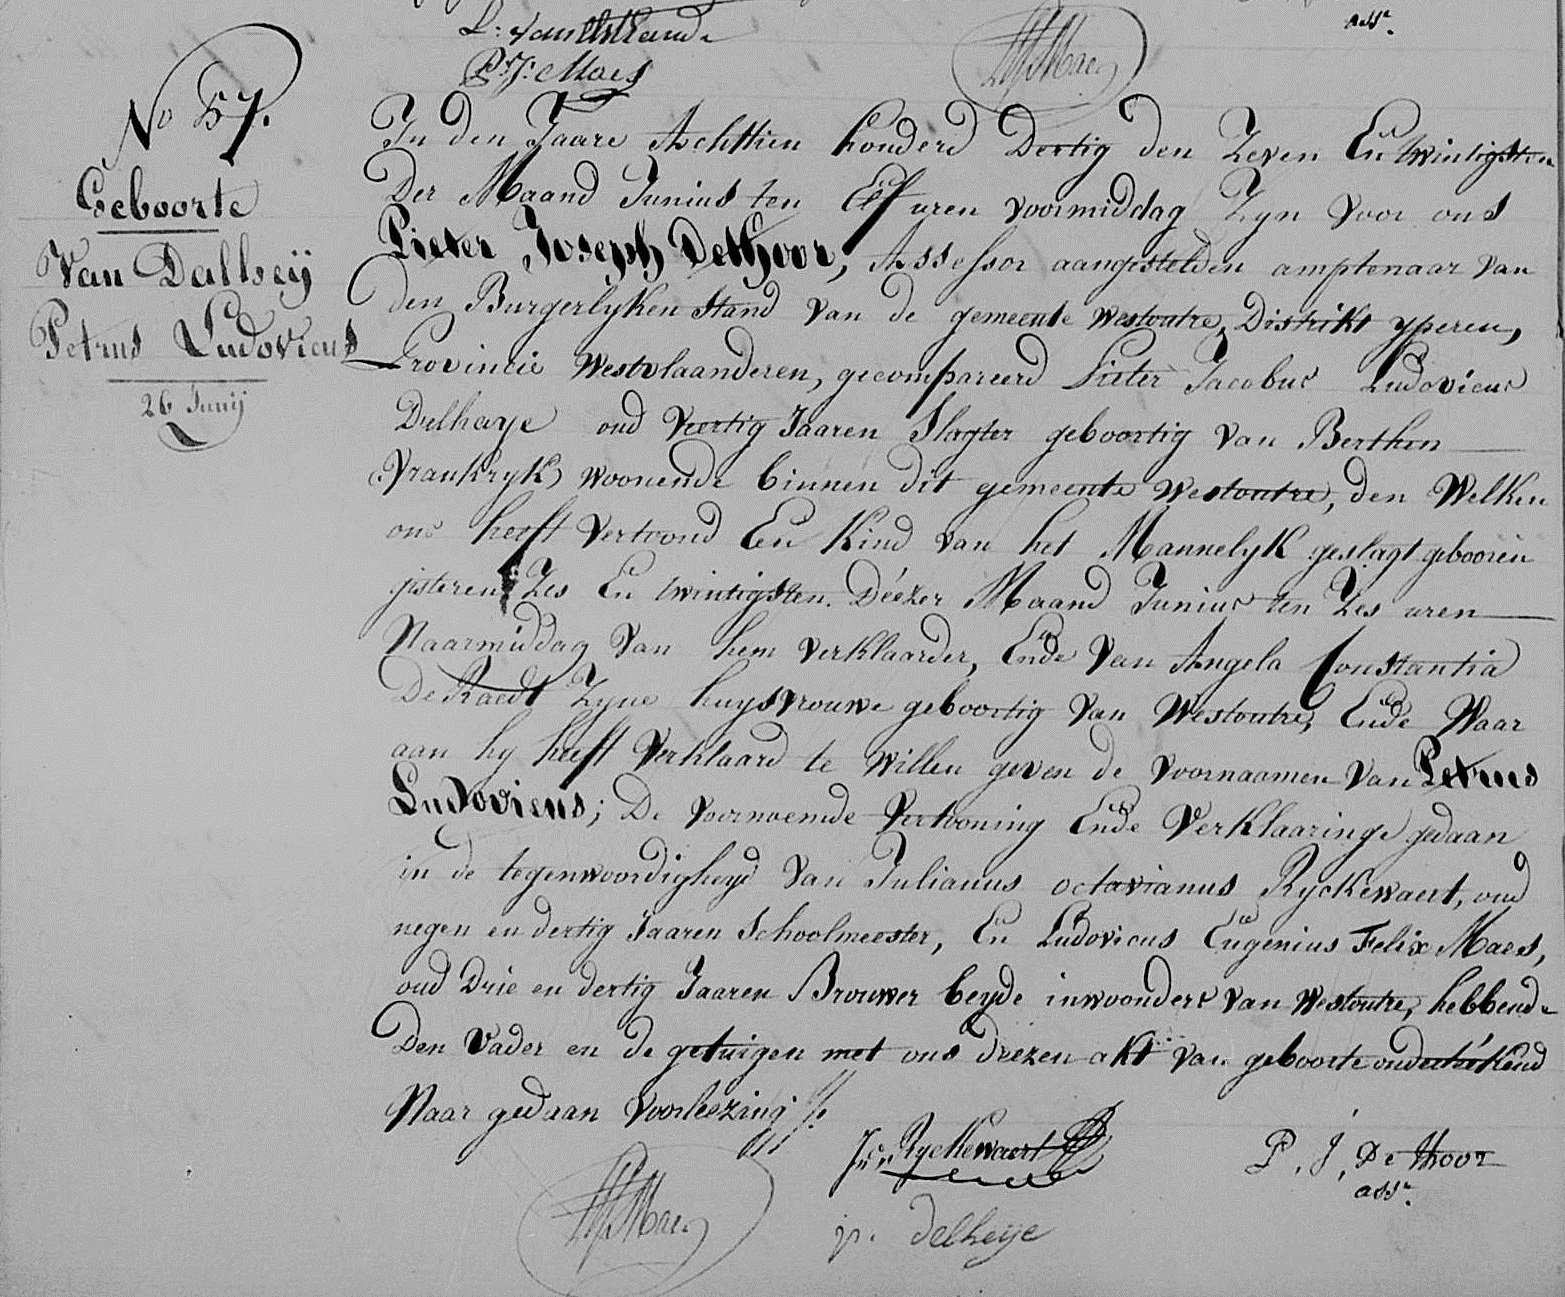 P: J: Maes
assr.
No 57.
Geboorte
Van Dalheij
Petrus Ludovicus
26 Junij
In den Jaare Achttien honderd Dertig den Zeven En twintigsten
Der Maand Junius ten Elf uren voormiddag Zyn voor ons
Pieter Joseph Dethoor, Assessor aangestelden amptenaar van
den Burgerlyken Stand van de gemeente Westoutre, Distrikt yperen,
Provincie Westvlaanderen, gecompareerd Pieter Jacobus Ludovicus
Delhaye oud veertig Jaaren Slagter geboortig van Berthen
(Vrankryk) woonende binnen dit gemeente Westoutre, den Welken
ons heeft vertoond Een Kind van het Mannelyk geslagt gebooren
gisteren Zes En twintigsten Déezer Maand Junius ten Zes uren
Naarmiddag van hem verklaarder, Ende van Angela Constantia
De Raedt Zyne huysvrouwe geboortig van Westoutre, Ende Waar
aan hy heeft Verklaard te willen geven de voornaamen van Petrus
Ludovicus; De voornoemde Vertooning Ende Verklaaringe gedaan
in de tegenwoordigheyd van Julianus octavianus Ryckewaert, oud
negen en dertig Jaaren Schoolmeester, En Ludovicus Eugenius Felix Maes,
oud Drie en dertig Jaaren Brouwer beyde inwoonders van Westoutre, hebbende
Den Vader en de getuigen met ons deezen akt van geboorte onderteékend
Naar gedaan voorleezing
Ryckewaert
P. J. De thoor
assr.
Maes
p. delheije